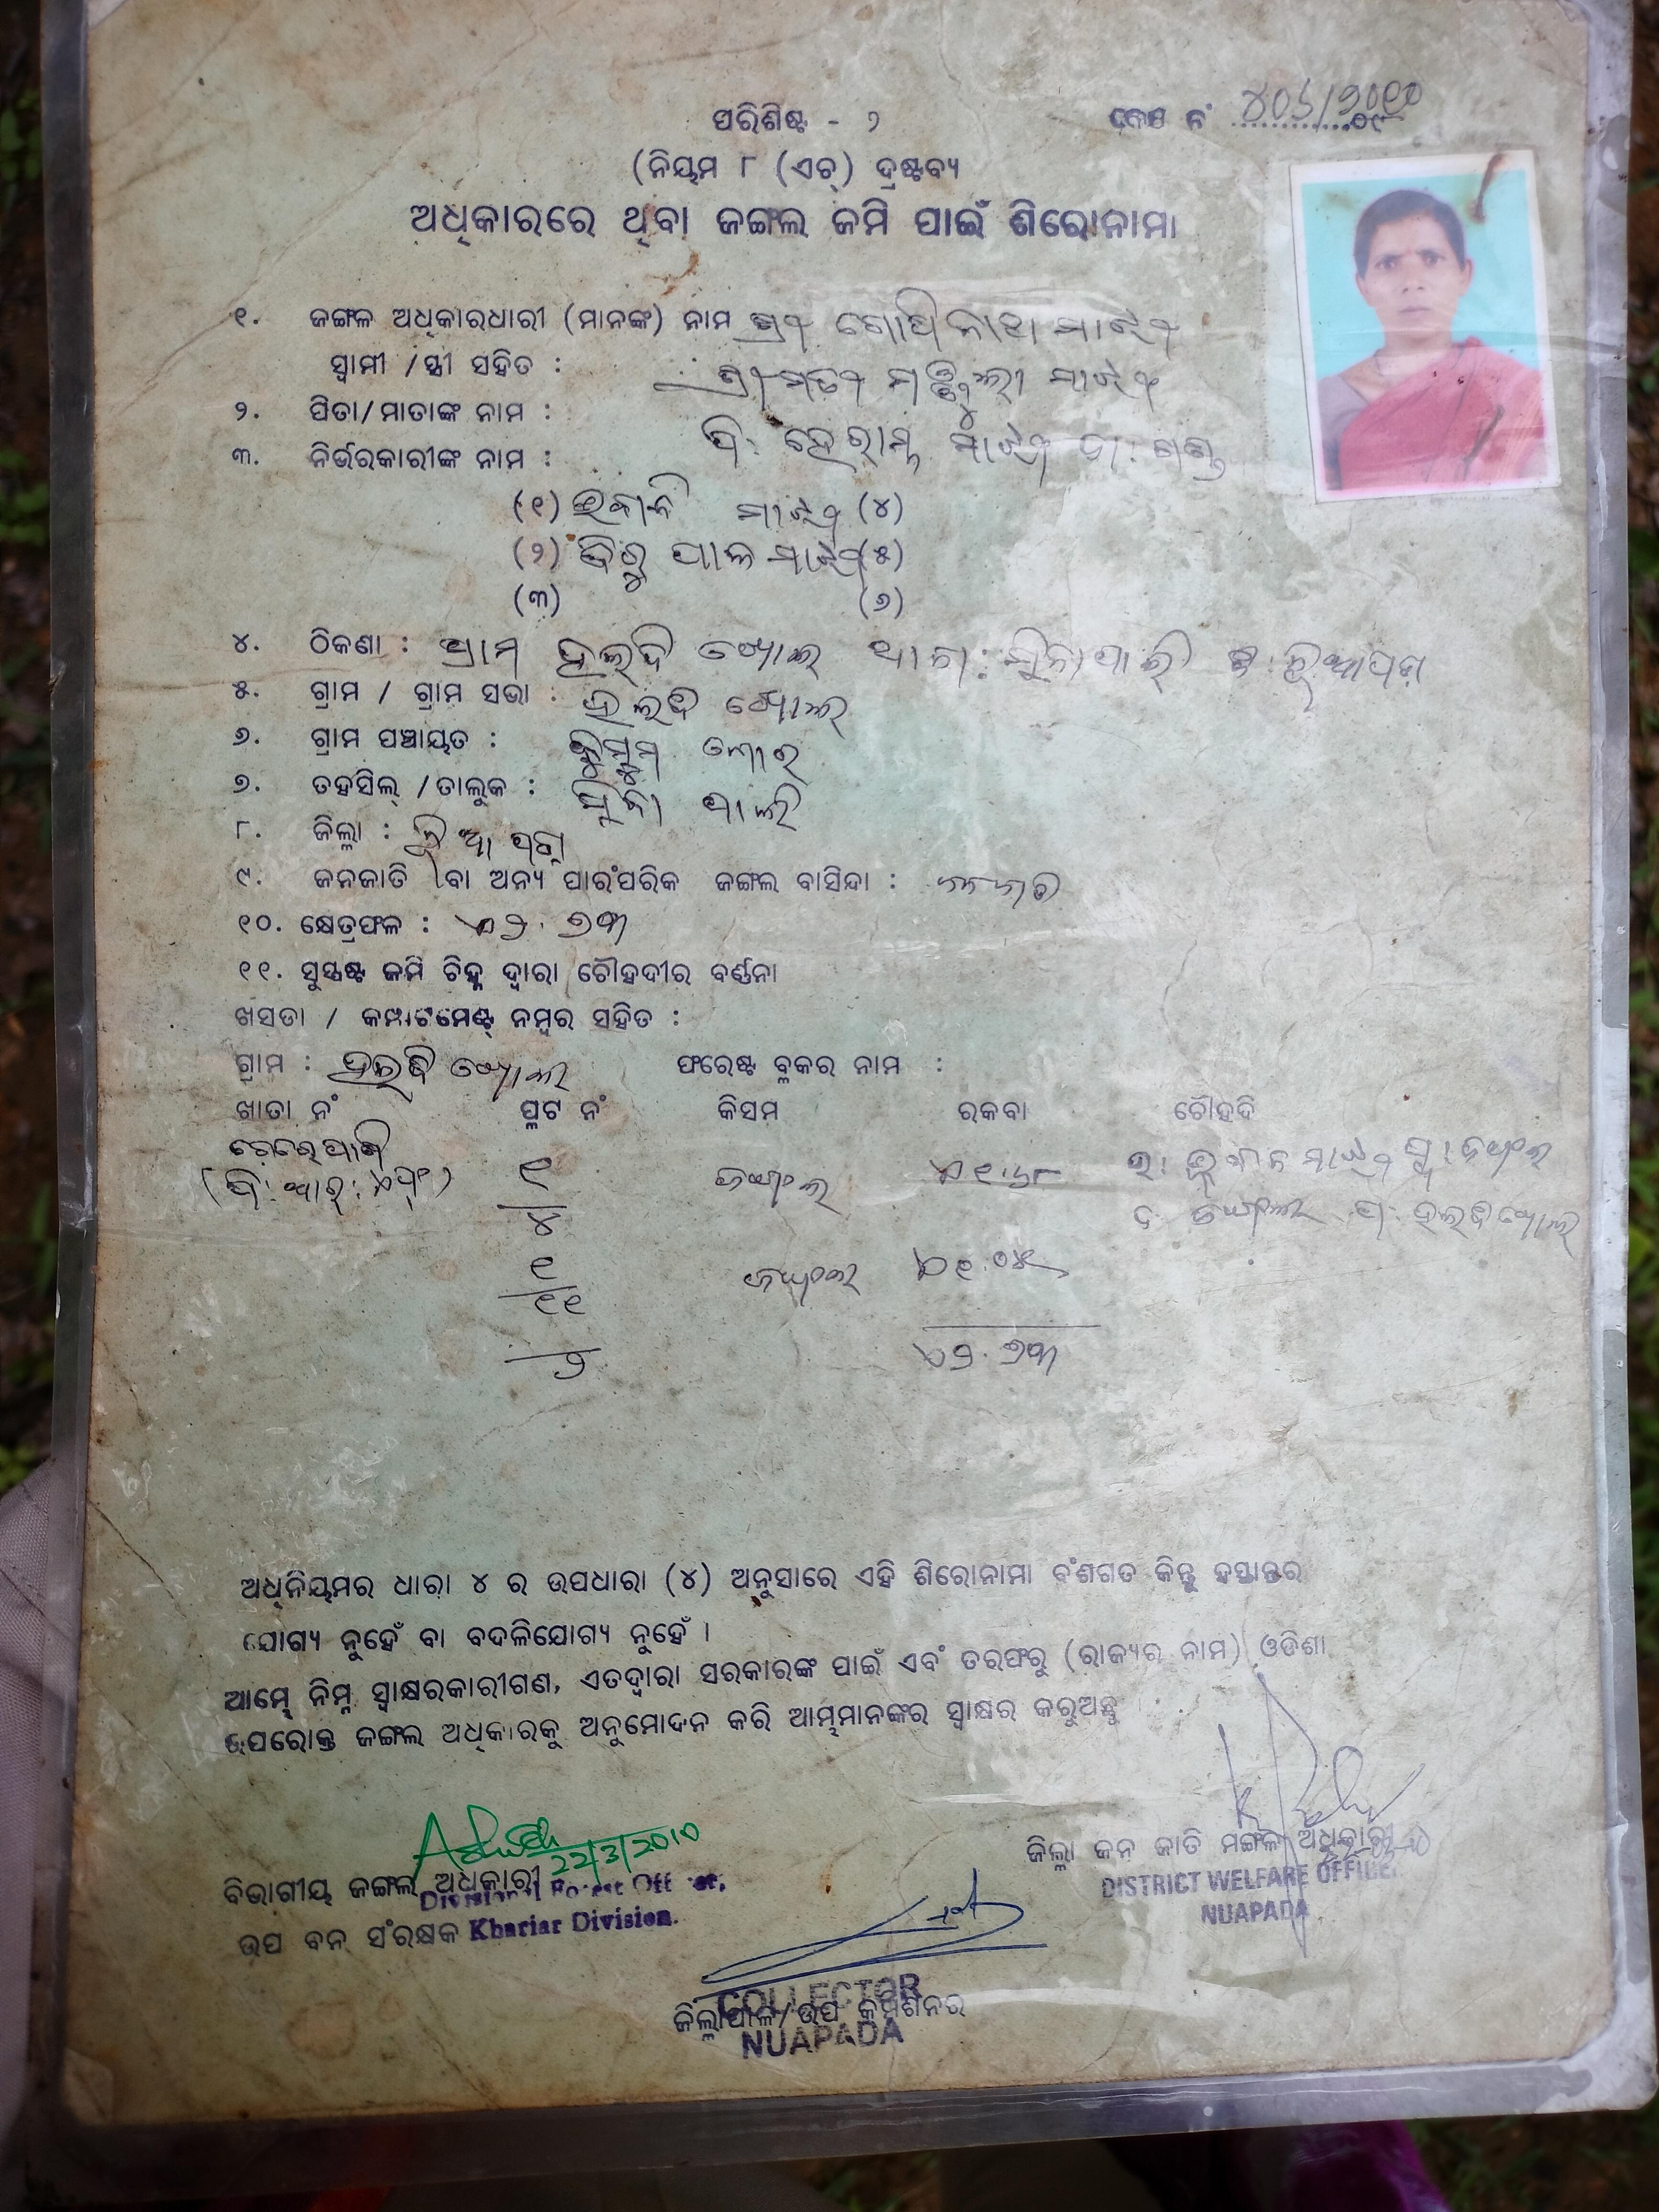 ପରିଶିଷ୍ଟ - ୨
କେସ ନଂ ୪୦୬/୨୦୧୦
(ନିୟମ ୮ (ଏଚ୍) ଦ୍ରଷ୍ଟବ୍ୟ
ଅଧିକାରରେ ଥିବା ଜଙ୍ଗଲ ଜମି ପାଇଁ ଶିରୋନାମା
୧. ଜଙ୍ଗଳ ଅଧିକାରଧାରୀ (ମାନଙ୍କ) ନାମ ଶ୍ରୀ ଗୋପିନାଥ ମାଝୀ
ସ୍ୱାମୀ /ସ୍ତ୍ରୀ ସହିତ : ଶ୍ରୀମତୀ ମାଝୀ
୨. ପିତା/ମାତାଙ୍କ ନାମ :
ପି: ମାଝୀ
୩. ନିର୍ଭରକାରୀଙ୍କ ନାମ :
(୧) ମାଝୀ (୪)
(୨) ପାଳ ମାଝୀ (୫)
(୩) (୬)
୪. ଠିକଣା : ଗ୍ରାମ ହଲ୍ଦି ଖୋଲ୍ ଥାନା: ସିନାପାଲି ଜି: ନୂଆପଡା
୫. ଗ୍ରାମ / ଗ୍ରାମ ସଭା : ହଲଦି ଖୋଲ୍
୬. ଗ୍ରାମ ପଞ୍ଚାୟତ :
୭. ତହସିଲ୍ /ତାଲୁକ : ସିନା ପାଲି
୮. ଜିଲ୍ଲା : ନୂଆପଡା
୯. ଜନଜାତି /ବା ଅନ୍ୟ ପାରଂପରିକ ଜଙ୍ଗଲ ବାସିନ୍ଦା :
୧୦. କ୍ଷେତ୍ରଫଳ : ଏ ୨.୭୩
୧୧. ସୁସ୍ପଷ୍ଟ ଜମି ଚିହ୍ନ ଦ୍ୱାରା ଚୌହଦୀର ବର୍ଣ୍ଣନା
ଖସଡା / କମ୍ପାଟମେଣ୍ଟ୍ ନମ୍ବର ସହିତ :
ଗ୍ରାମ : ହଲଦି ଖୋଲ ଫରେଷ୍ଟ ବ୍ଳକର ନାମ :
ଖାତା ନଂ ପ୍ଳଟ ନଂ କିସମ ରକବା ଚୌହଦି
(ପି: ଆର୍: ଏଫ୍) ୧/୪ ଜଙ୍ଗଲ ଏ ୧.୬୮ ମାଝୀ ପୂ: ଜଙ୍ଗଲ
ଦ: ଜଙ୍ଗଲ ପ: ହଲଦିଖୋଲ୍
୧/୧୧ ଜଙ୍ଗଲ ଏ ୧.୦୫
୨ ଏ ୨.୭୩
ଅଧିନିୟମର ଧାରା ୪ ର ଉପଧାରା (୪) ଅନୁସାରେ ଏହି ଶିରୋନାମା ବଂଶଗତ କିନ୍ତୁ ହସ୍ତାନ୍ତର
ଯୋଗ୍ୟ ନୁହେଁ ବା ବଦଳିଯୋଗ୍ୟ ନୁହେଁ ।
ଆମ୍ଭେ ନିମ୍ନ ସ୍ୱାକ୍ଷରକାରୀଗଣ, ଏତଦ୍ୱାରା ସରକାରଙ୍କ ପାଇଁ ଏବଂ ତରଫରୁ (ରାଜ୍ୟର ନାମ) ଓଡିଶା
ଉପରୋକ୍ତ ଜଙ୍ଗଲ ଅଧିକାରକୁ ଅନୁମୋଦନ କରି ଆମ୍ଭମାନଙ୍କର ସ୍ୱାକ୍ଷର କରୁଅଛୁ
22/3/2010
ବିଭାଗୀୟ ଜଙ୍ଗଲ ଅଧିକାରୀ
Divisional Forest Officer,
ଉପ ବନ ସଂରକ୍ଷକ Khariar Division.
ଜିଲ୍ଲା ଜନ ଜାତି ମଙ୍ଗଳ ଅଧିକାରୀ
DISTRICT WELFARE OFFICER
NUAPADA
COLLECTOR
ଜିଲ୍ଲାପାଳ/ଉପ କମିଶନର
NUAPADA